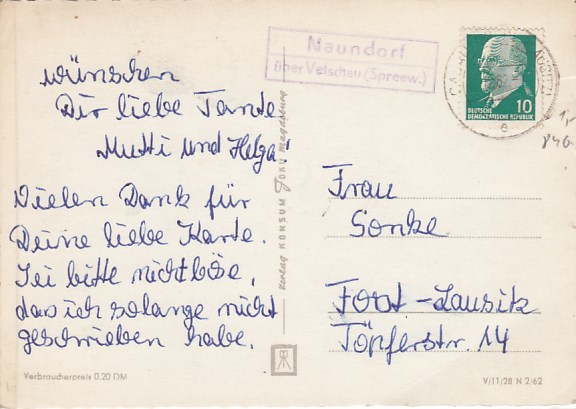 wünschen
Dir liebe Tante
Mutti und Helga
Vielen Dank für
Deine liebe Karte.
Sei bitte nicht böse,
das ich solange nicht
geschrieben habe.
Verbraucherpreis 0,20 DM
Verlag KONSUM FOKU Magdeburg
Naundorf
über Vetschau (Spreew.)
10
DEUTSCHE
DEMOKRATISCHE REPUBLIK
e
Frau
Sonke
Forst-Lausitz
Töpferstr. 14
V/11/28 N 2/62